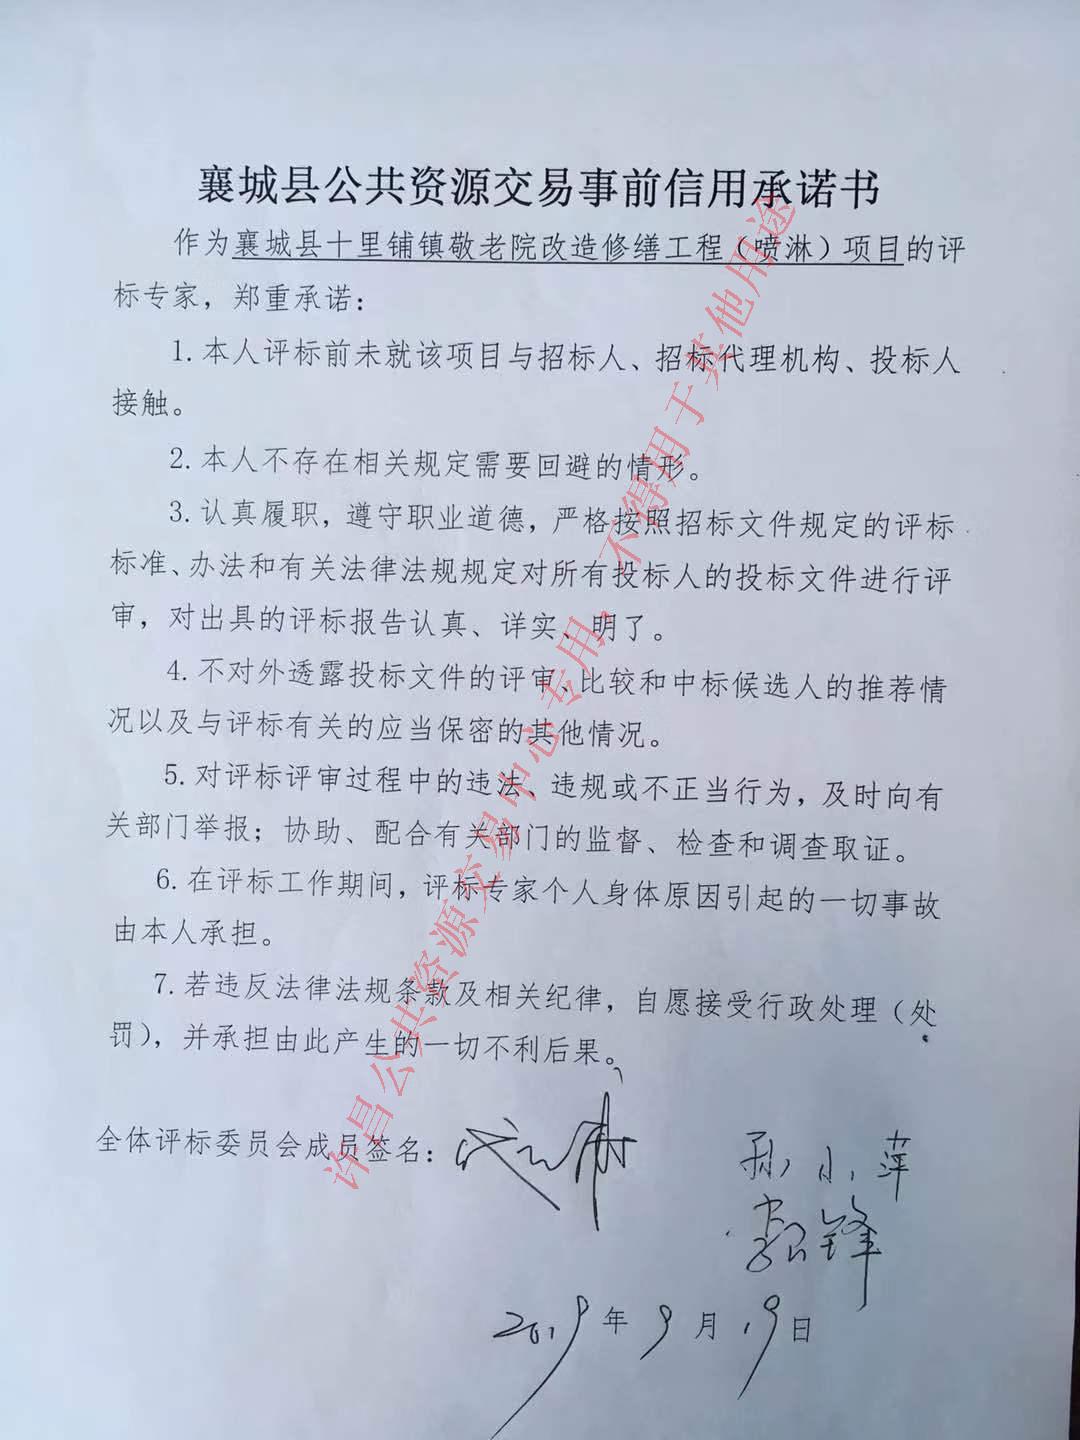 襄城县公共资源交易事前信用承诺书
作为襄城县十里铺镇敬老院改造修缮工程（喷淋）项目的评
标专家，郑重承诺：
1.本人评标前未就该项目与招标人、招标代理机构、投标人
接触。
2.本人不存在相关规定需要回避的情形。
3.认真履职，遵守职业道德，严格按照招标文件规定的评标
标准、办法和有关法律法规规定对所有投标人的投标文件进行评
审，对出具的评标报告认真、详实、明了。
4.不对外透露投标文件的评审、比较和中标候选人的推荐情
况以及与评标有关的应当保密的其他情况。
5.对评标评审过程中的违法、违规或不正当行为，及时向有
关部门举报；协助、配合有关部门的监督、检查和调查取证。
6.在评标工作期间，评标专家个人身体原因引起的一切事故
由本人承担。
7.若违反法律法规条款及相关纪律，自愿接受行政处理（处
罚），并承担由此产生的一切不利后果。
全体评标委员会成员签名：
孙小萍
锋
2019年9月19日
许昌公共资源交易中心专用，不得用于其他用途